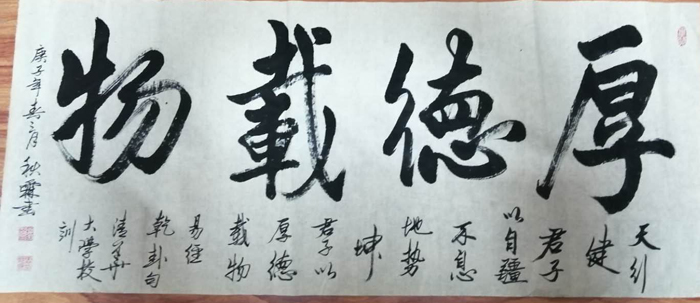 厚德載物
天行
健
君子
以自疆
不息
地势
坤
君子以
厚德
載物
易经
乾卦句
清华
大学校
训
庚子年春二月秋霖書